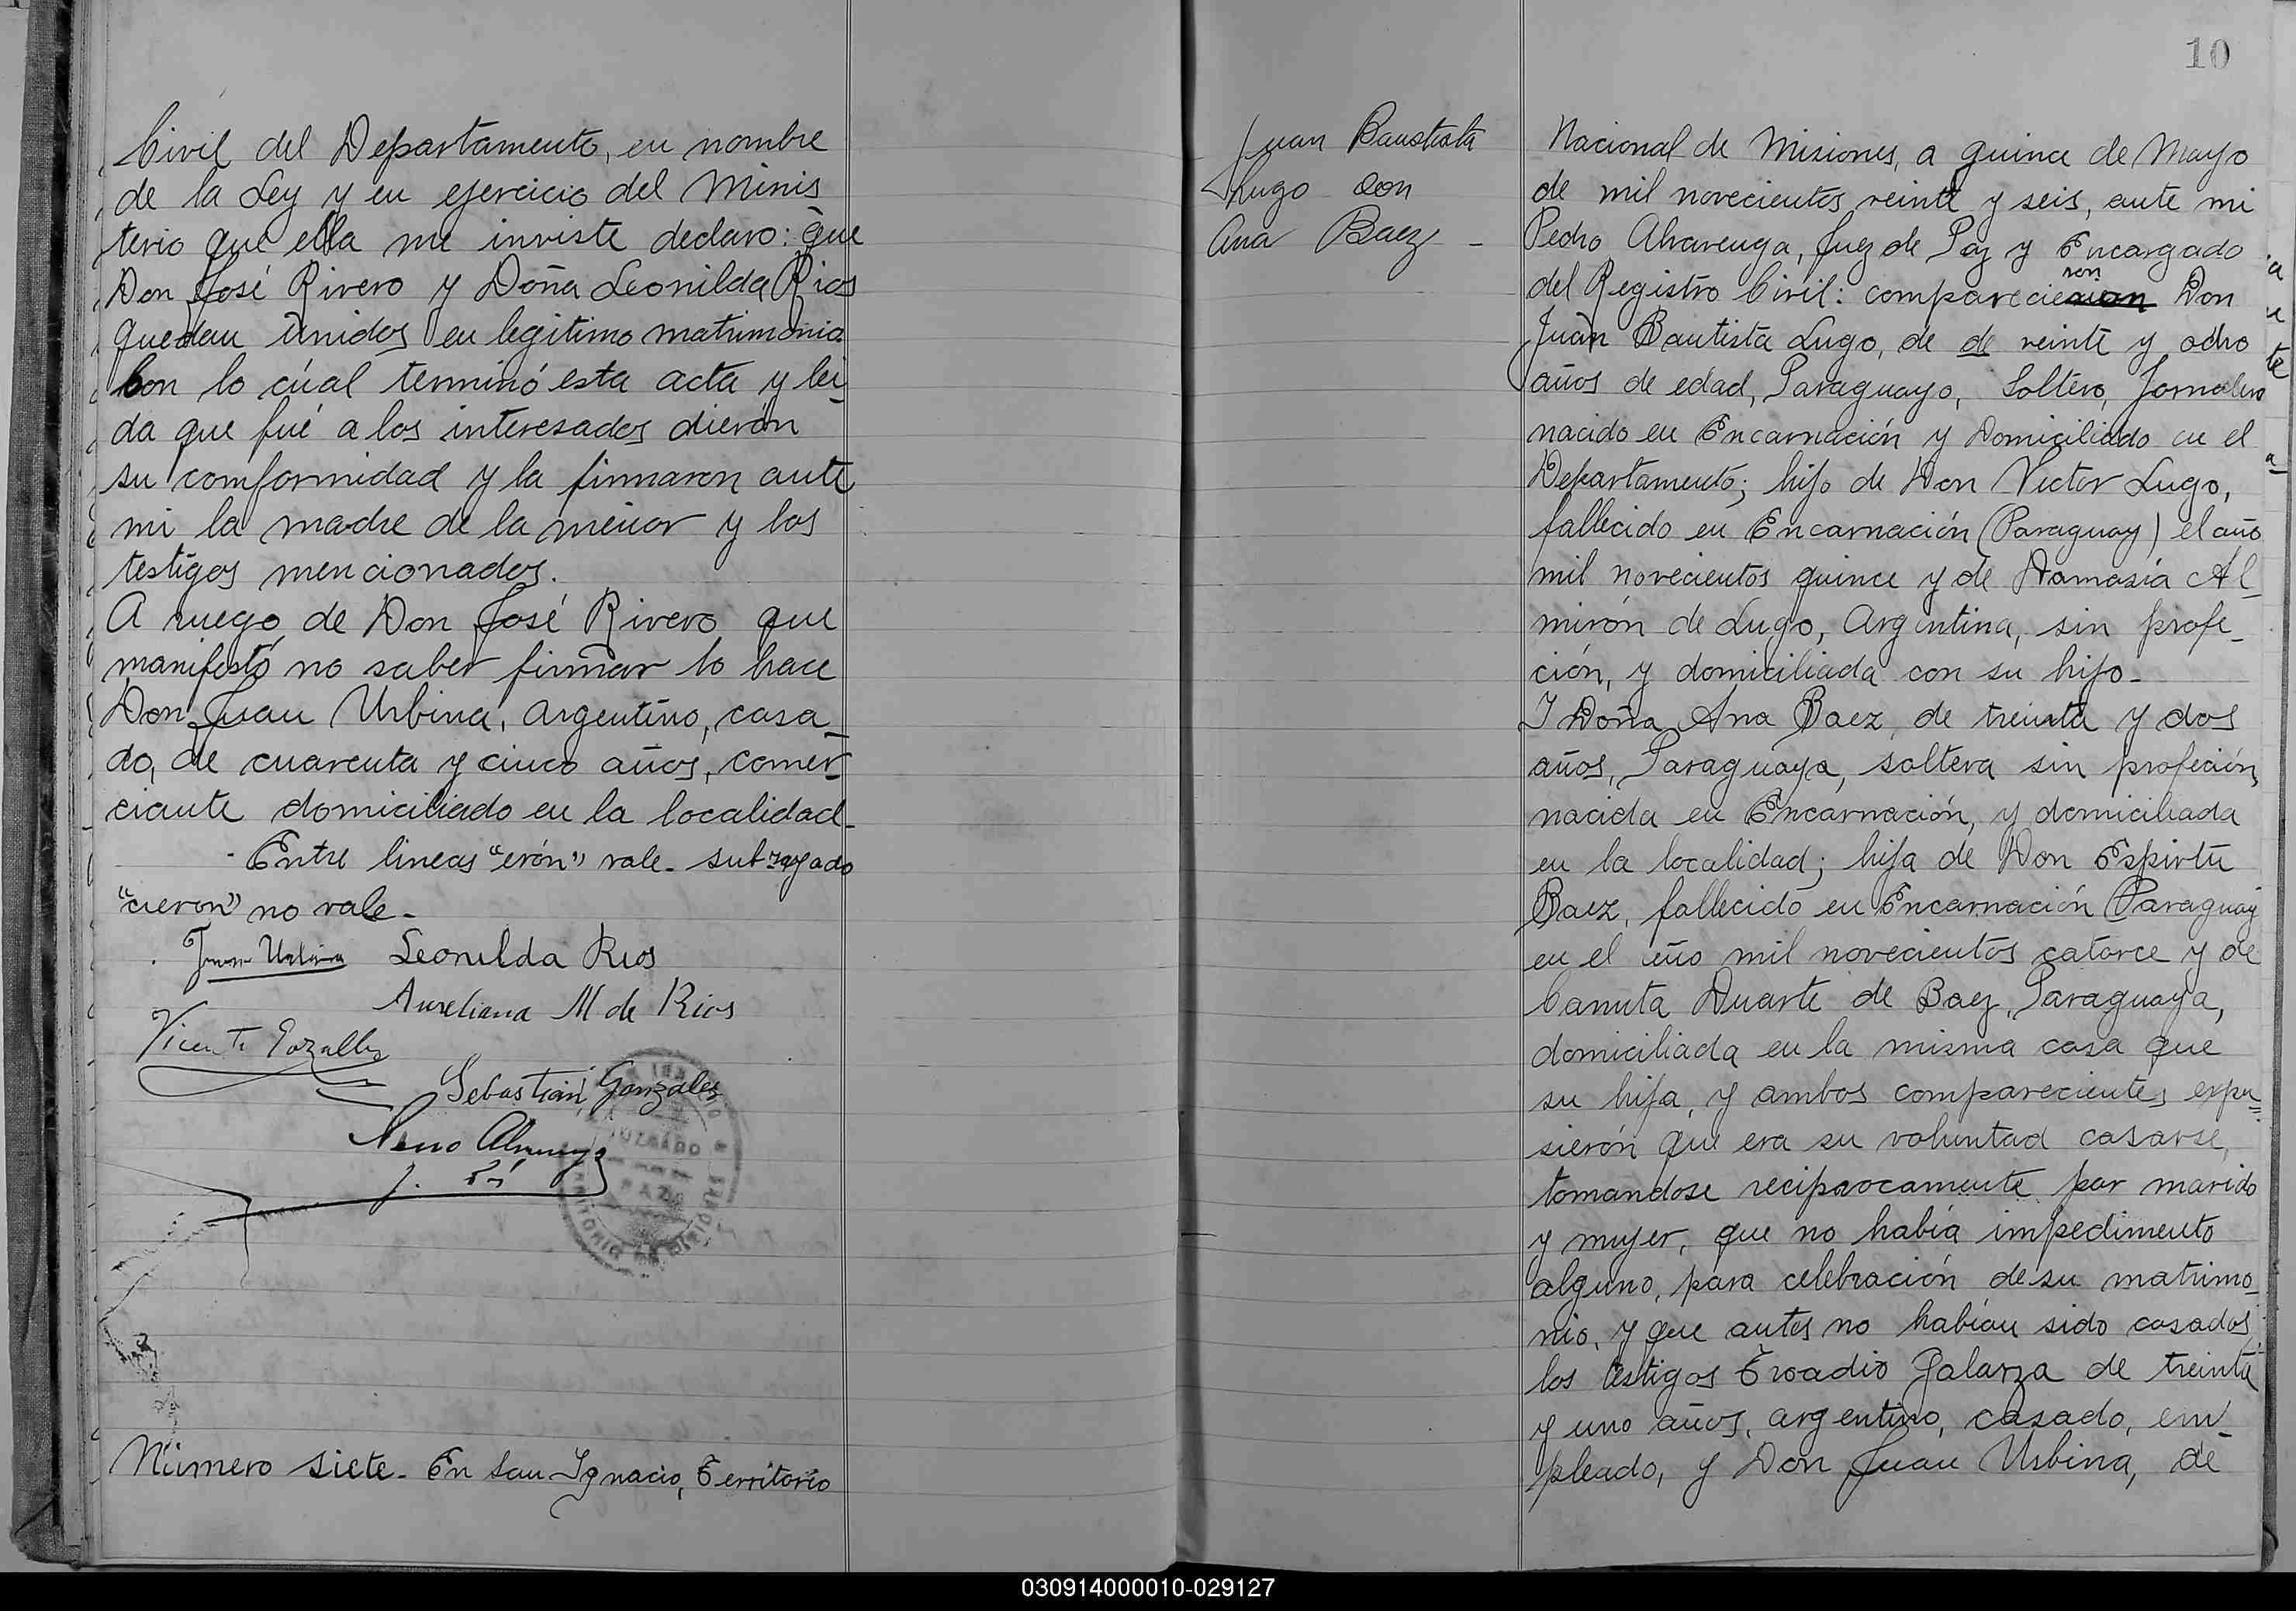 Civil del Departamento, en nombre
de la Ley y en ejercicio del Minis
terio que ella me inviste declaro: que
Don José Rivero y Doña Leonilda Rios
quedan unidos en legitimo matrimonio.
Con lo cúal terminó esta acta y lei_
da que fué a los interesados dierón
su comformidad y la firmaron ante
mi la madre de la menor y los
testigos mencionados.
A ruego de Don José Rivero que
manifestó no saber firmar lo hace
Don Juan Urbina, argentino, casa_
do, de cuarenta y cinco años, comer_
ciante domiciliado en la localidad_
Entre lineas "erón" vale_ subrayado
"cieron" no vale_
Juan Urbina Leonilda Rios
Aureliana M de Rios
Vicente
Sebastián Gonzales
JUZGADO
PAZ
Número siete_ En San Ignacio, Territorio
10
Juan Baustista
Lugo con
Ana Baez_
Nacional de Misiones, a quince de Mayo
de mil novecientos veinte y seis, ante mi
Pedro Alvarenga, Juez de Paz y Encargado
ron
del Registro Civil: comparecieron Don
Juan Bautista Lugo, de de veinte y ocho
años de edad, Paraguayo, Soltero, Jornalero
nacido en Encarnación y Domiciliado en el
Departamento; hijo de Don Victor Lugo,
fallecido en Encarnación (Paraguay) el año
mil novecientos quince y de Damasia Al_
mirón de Lugo, Argentina, sin profe_
ción, y domiciliada con su hijo_
I Doña Ana Baez, de treinta y dos
años, Paraguaya, soltera sin profeción,
nacida en Encarnación, y domiciliada
en la localidad; hija de Don Espirtu
Baez, fallecido en Encarnación (Paraguay
en el año mil novecientos catorce y de
Canuta Duarte de Baez, Paraguaya,
domiciliada en la misma casa que
su hija, y ambos comparecientes expu=
sierón que era su voluntad casarse,
tomandose reciprocamente por marido
y mujer, que no había impedimento
alguno, para celebración de su matrimo_
nio, y que antes no habian sido casados,
los testigos Troadio Galarza de treinta
y uno años, argentino, casado, em_
pleado, y Don Juan Urbina, de
030914000010-029127